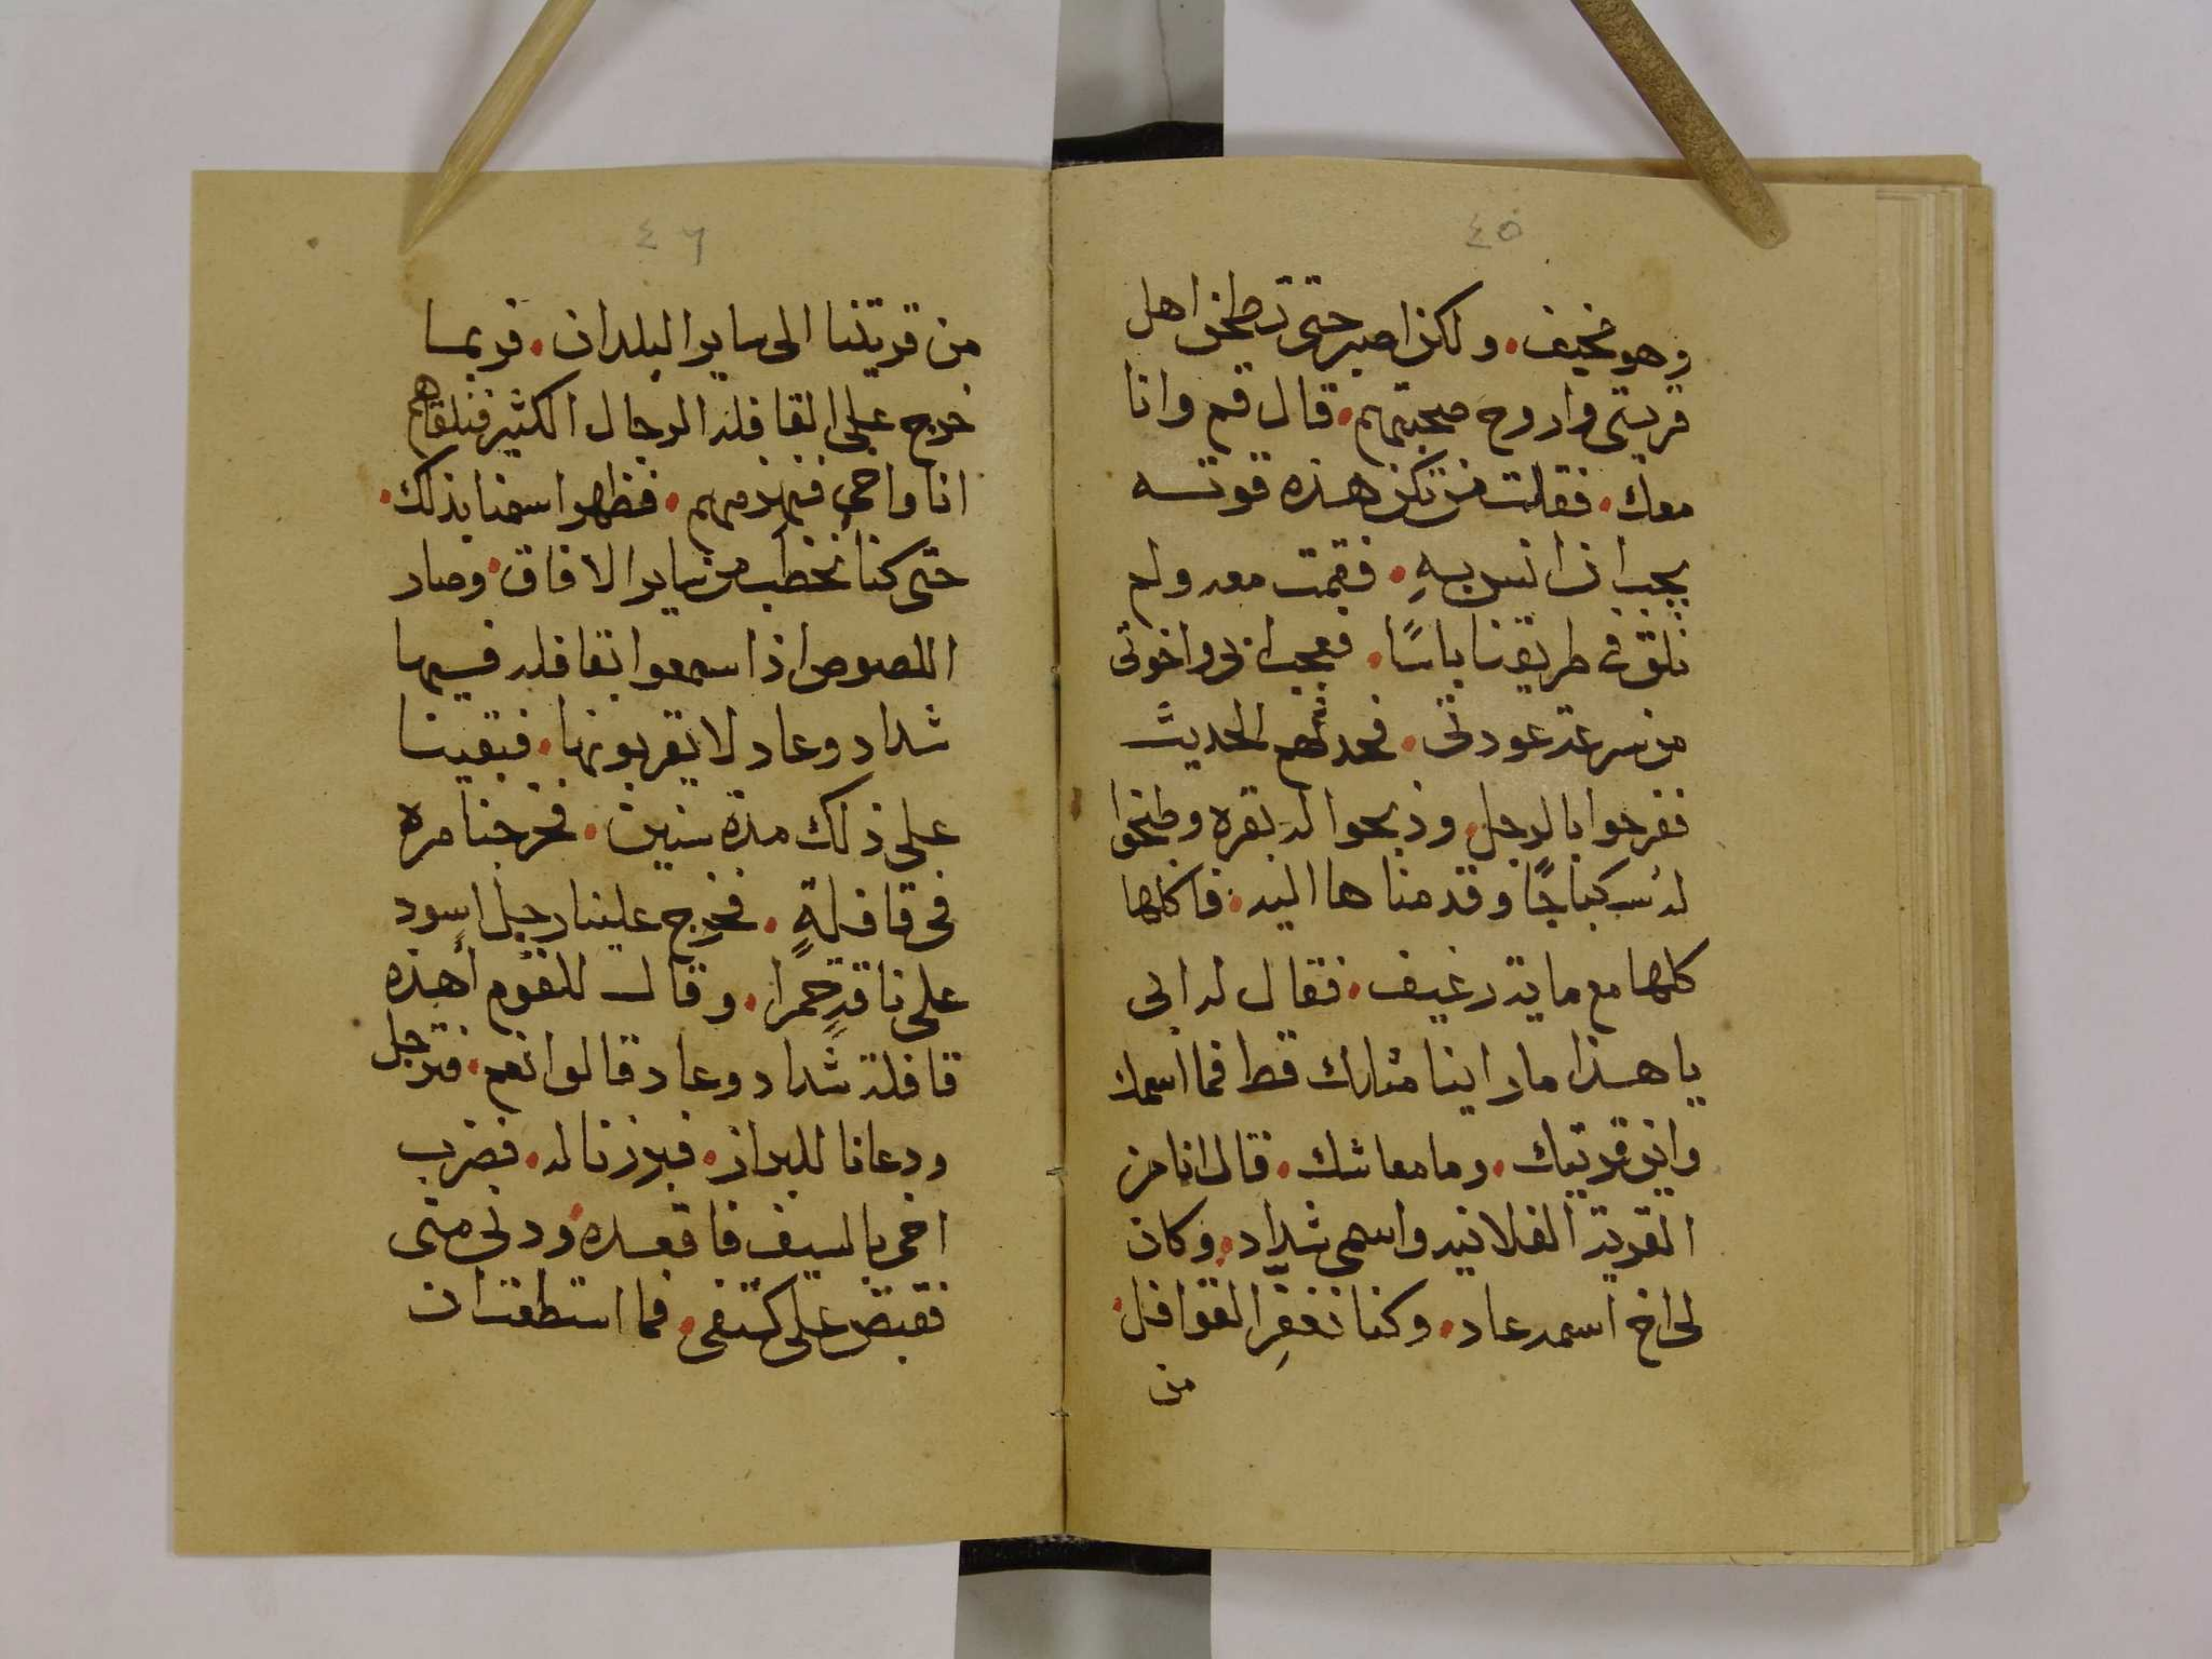 ٤٥
وهو مخيف. ولكن اصبر حتى تطحن اهل
قريتي واروح صحبتهم. قال قم وانا
معك. فقلت من تكن هذه قوته
يجب ان انس به. فقمت معه ولم
نلق في طريقنا باسًا. فعجب ابي واخوتي
من سرعة عودتي. فحدثتهم الحديث
ففرحوا بالرجل. وذبحوا له بقره وطبخوا
له سكباجًا وقدمناها اليه. فاكلها
كلها مع ماية رغيف. فقال له ابي
يا هذا ما راينا مثلك قط فما اسمك
واين قريتك. وما معاشك. قال انا من
القرية الفلانيه واسمي شداد. وكان
لي اخ اسمه عاد. وكنا نغفر القوافل.
من
٤٦
من قريتنا الى ساير البلدان. فربما
خرج على القافله الرجال الكثير فنلقاهم
انا واخي فنهزمهم. فظهر اسمنا بذلك.
حتى كنا نخطب من ساير الافاق. وصار
اللصوص اذا سمعوا بقافله فيها
شداد وعاد لا يقربونها. فبقينا
على ذلك مدة سنين. فخرجنا مره
في قافلةٍ. فخرج علينا رجل اسود
على ناقةٍ حمرا. وقال للقوم أهذه
قافلة شداد وعاد قالوا نعم. فترجل
ودعانا للبراز. فبرزنا له. فضرب
اخي بالسيف فاقعده. ودنى منى
فقبض على كتفى. فما استطعت ان